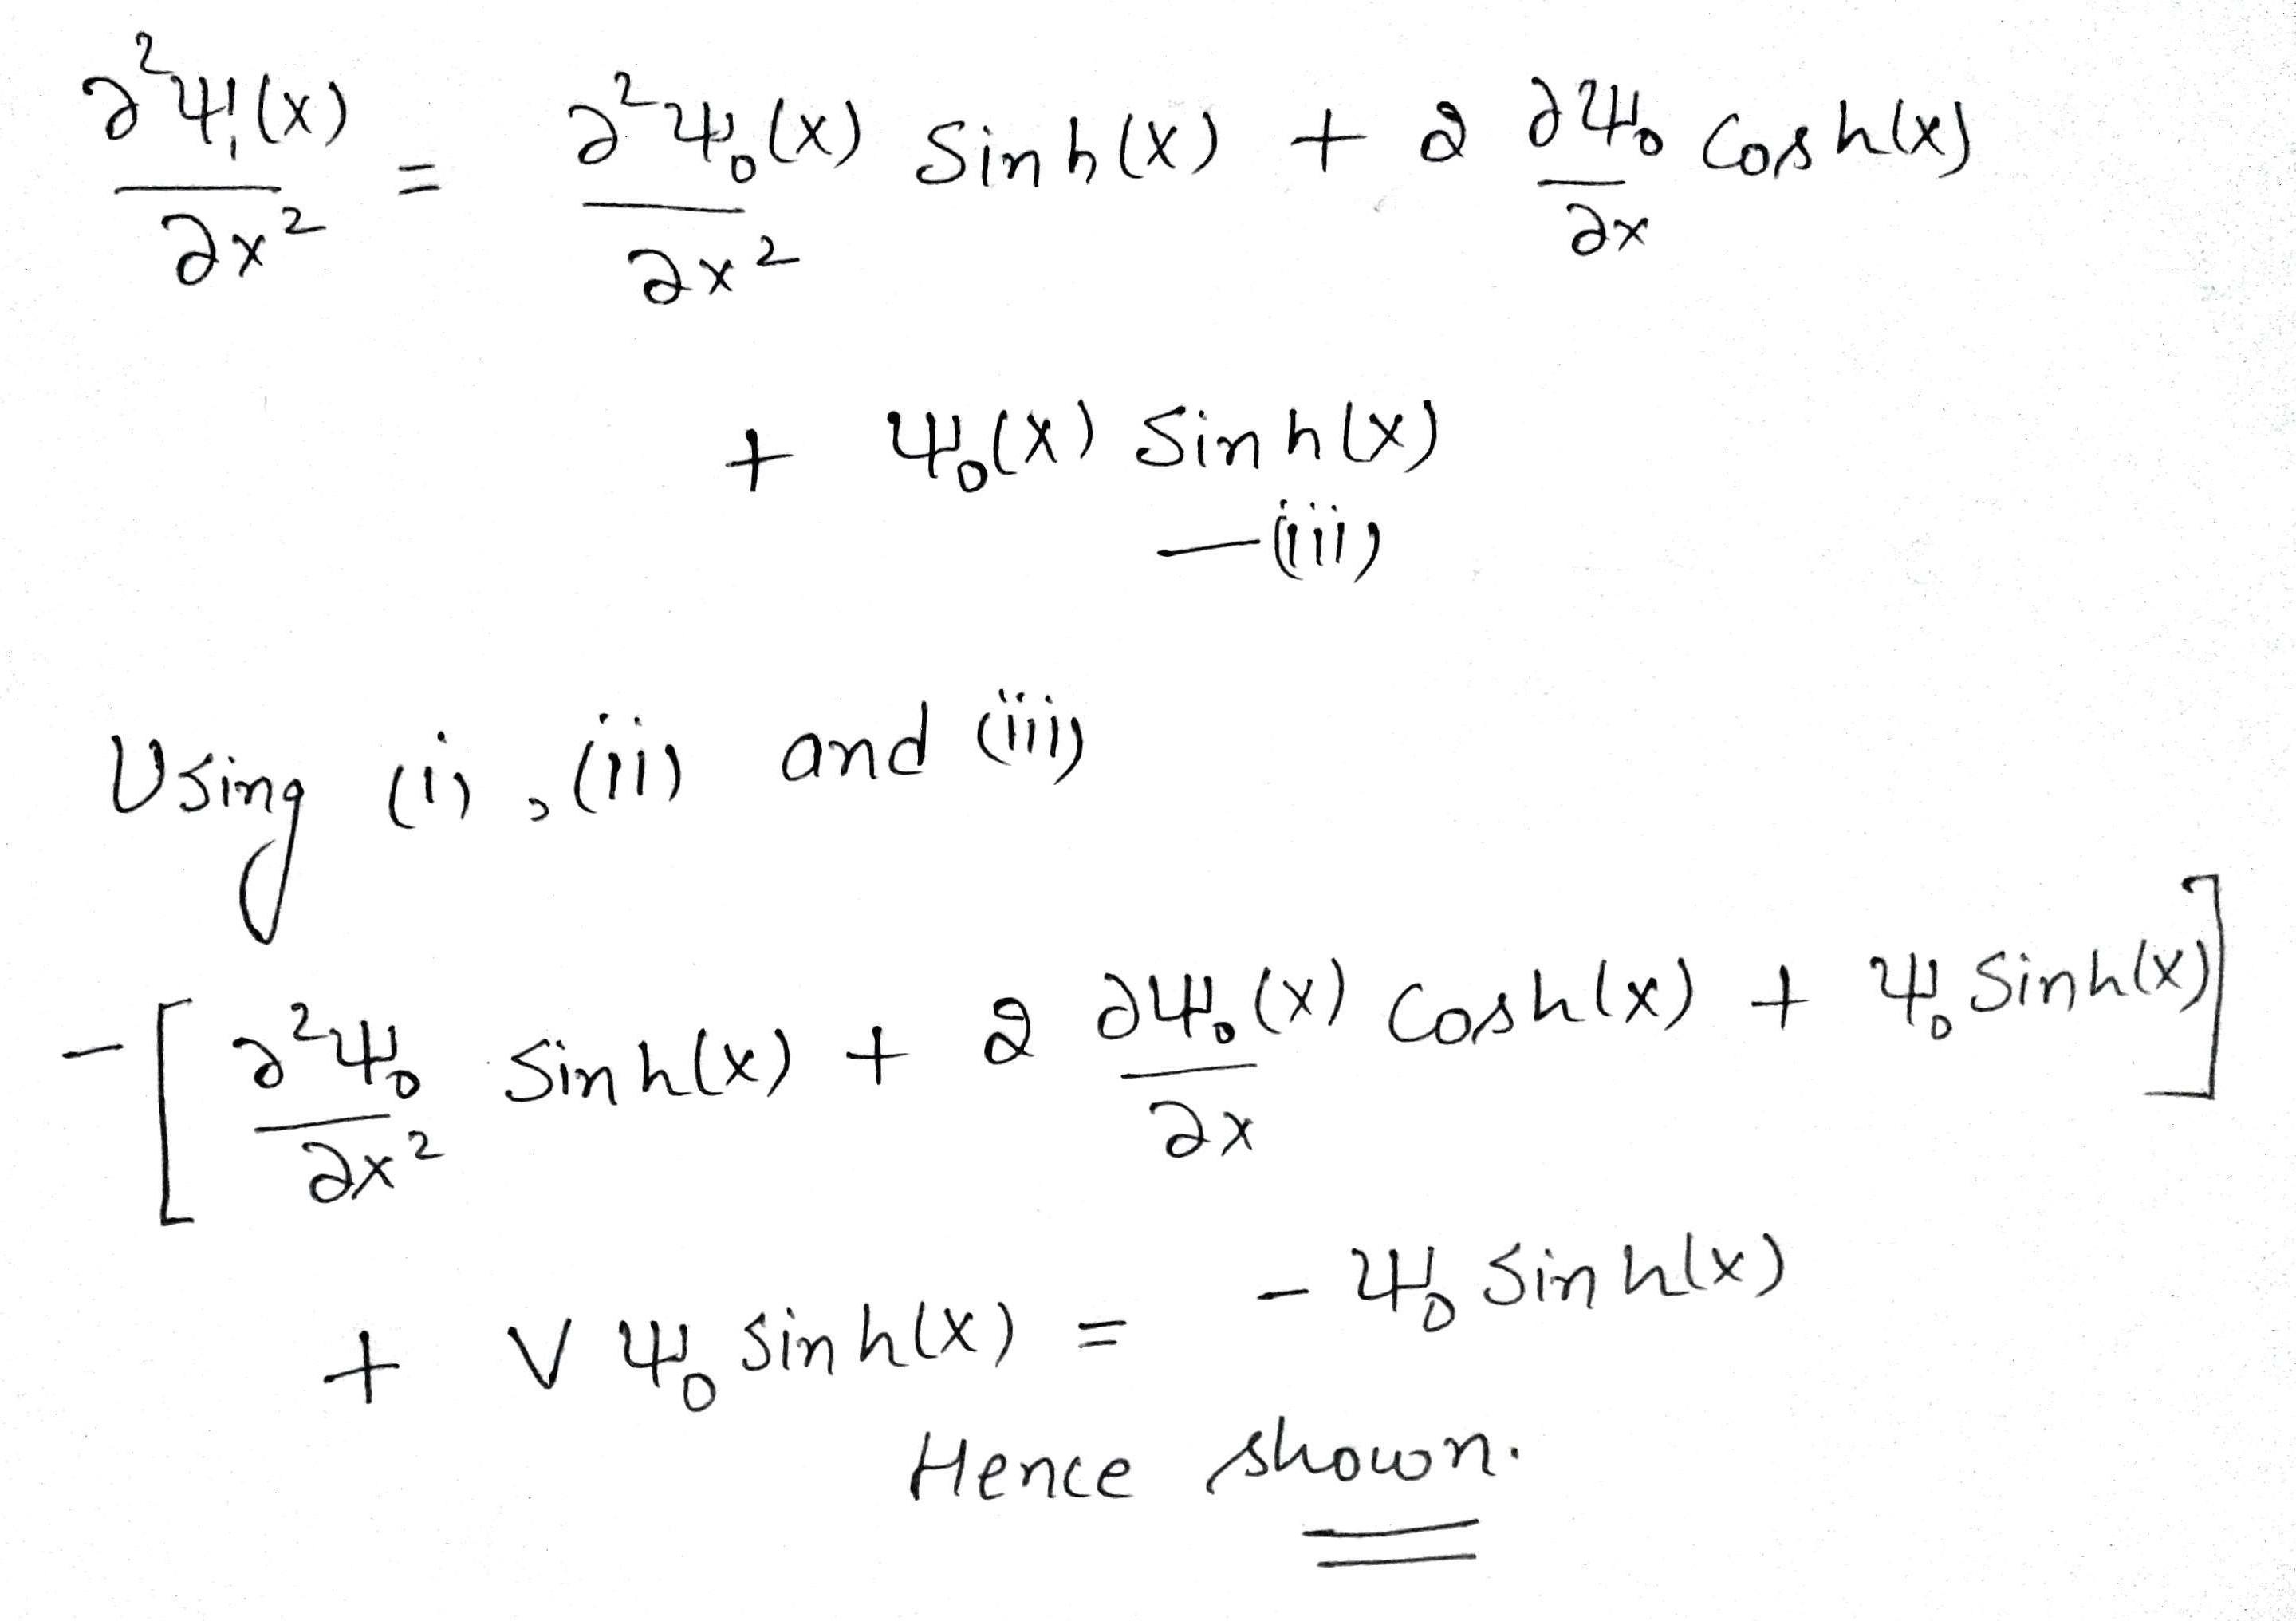 ∂²ψ₁(x)/∂x² = ∂²ψ₀(x)/∂x² Sinh(x) + 2 ∂ψ₀/∂x Cosh(x)
+ ψ₀(x) Sinh(x)
—(iii)
Using (i), (ii) and (iii)
-[∂²ψ₀/∂x² Sinh(x) + 2 ∂ψ₀(x)/∂x Cosh(x) + ψ₀ Sinh(x)]
+ V ψ₀ Sinh(x) = - ψ₀ Sinh(x)
Hence shown.